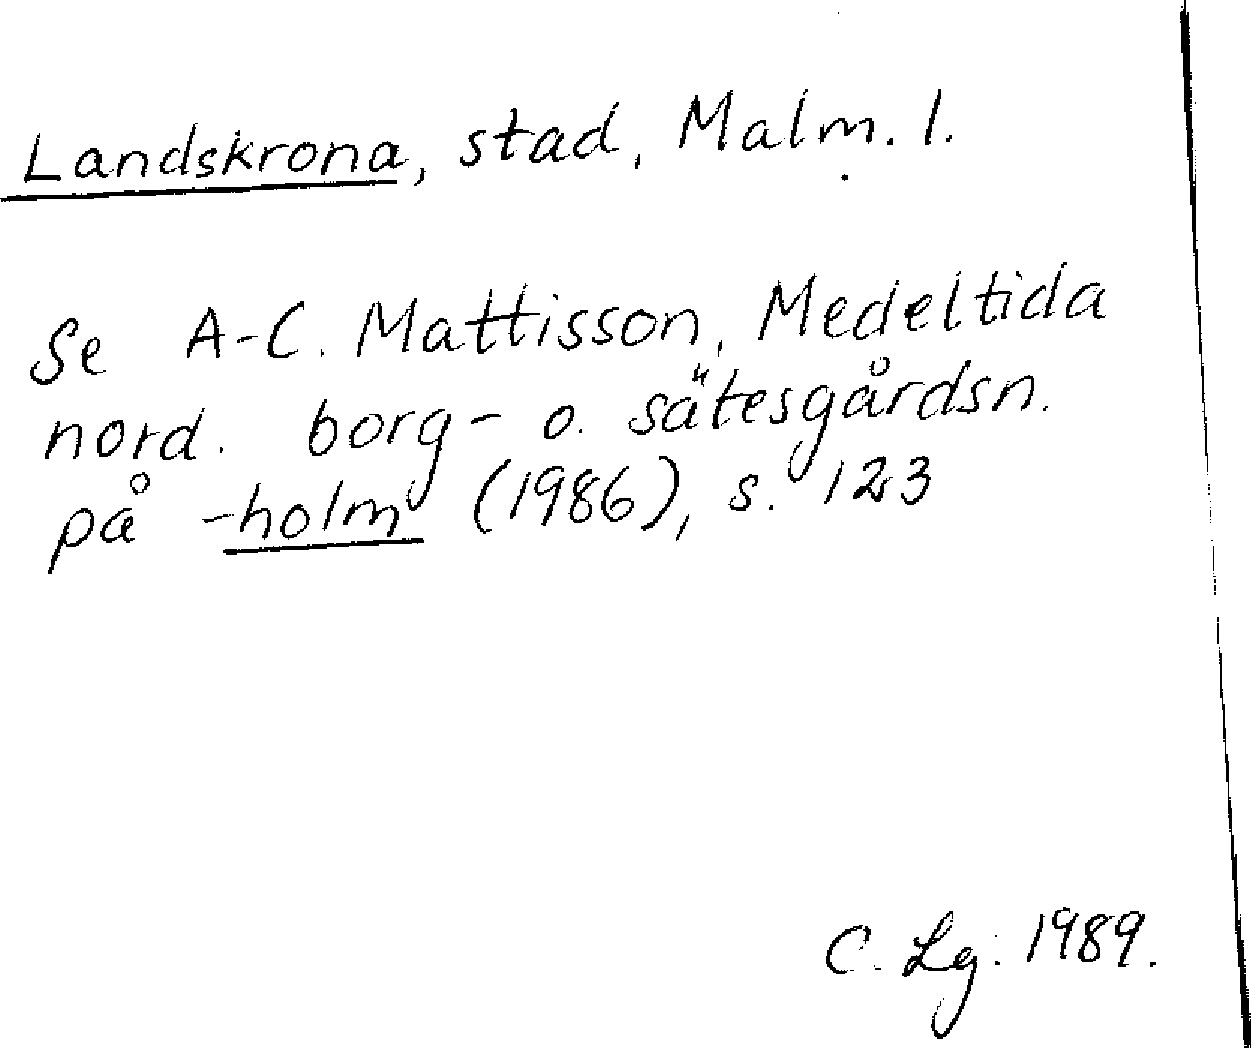 Landskrona, stad, Malm. l.
Se A-C. Mattisson, Medeltida
nord. borg- o. sätesgårdsn.
på -holm (1986), s. 123
C. Lg. 1989.